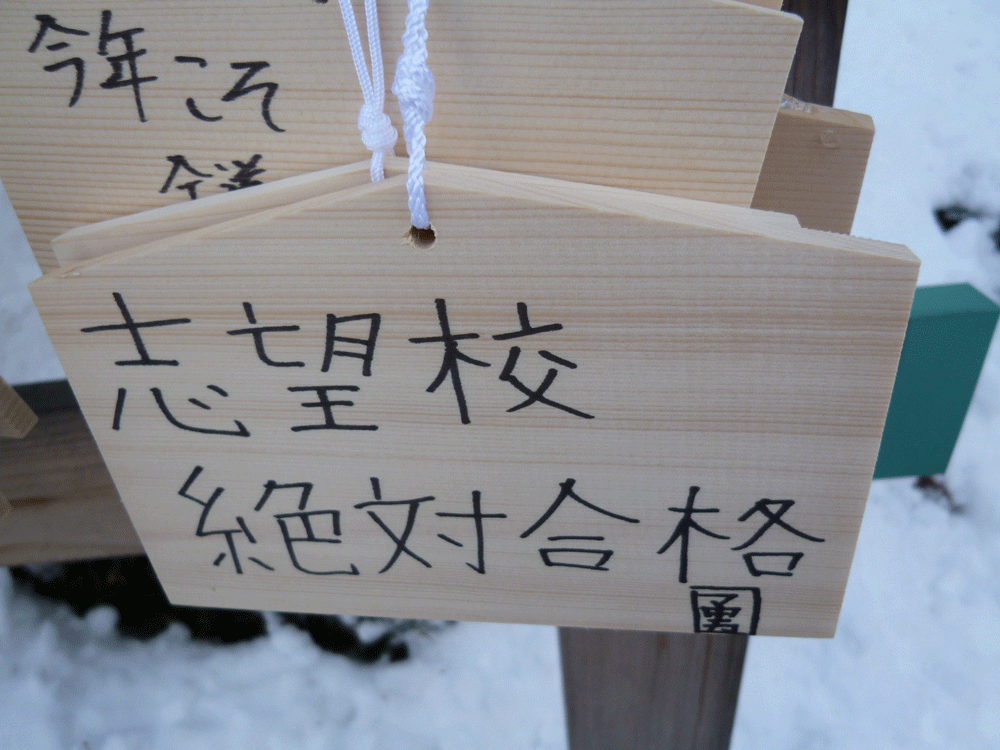 今年こそ
志望校
絶対合格
勇